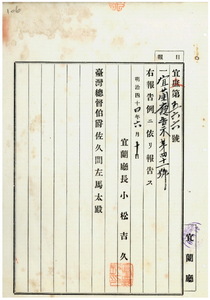 宜庶第五六六號
一宜蘭廳告示第四十一號
右報告例ニ依リ報告ス
明治四十四年六月十日
宜蘭廳長 小松吉久
臺灣總督伯爵佐久間左馬太殿
宜蘭廳